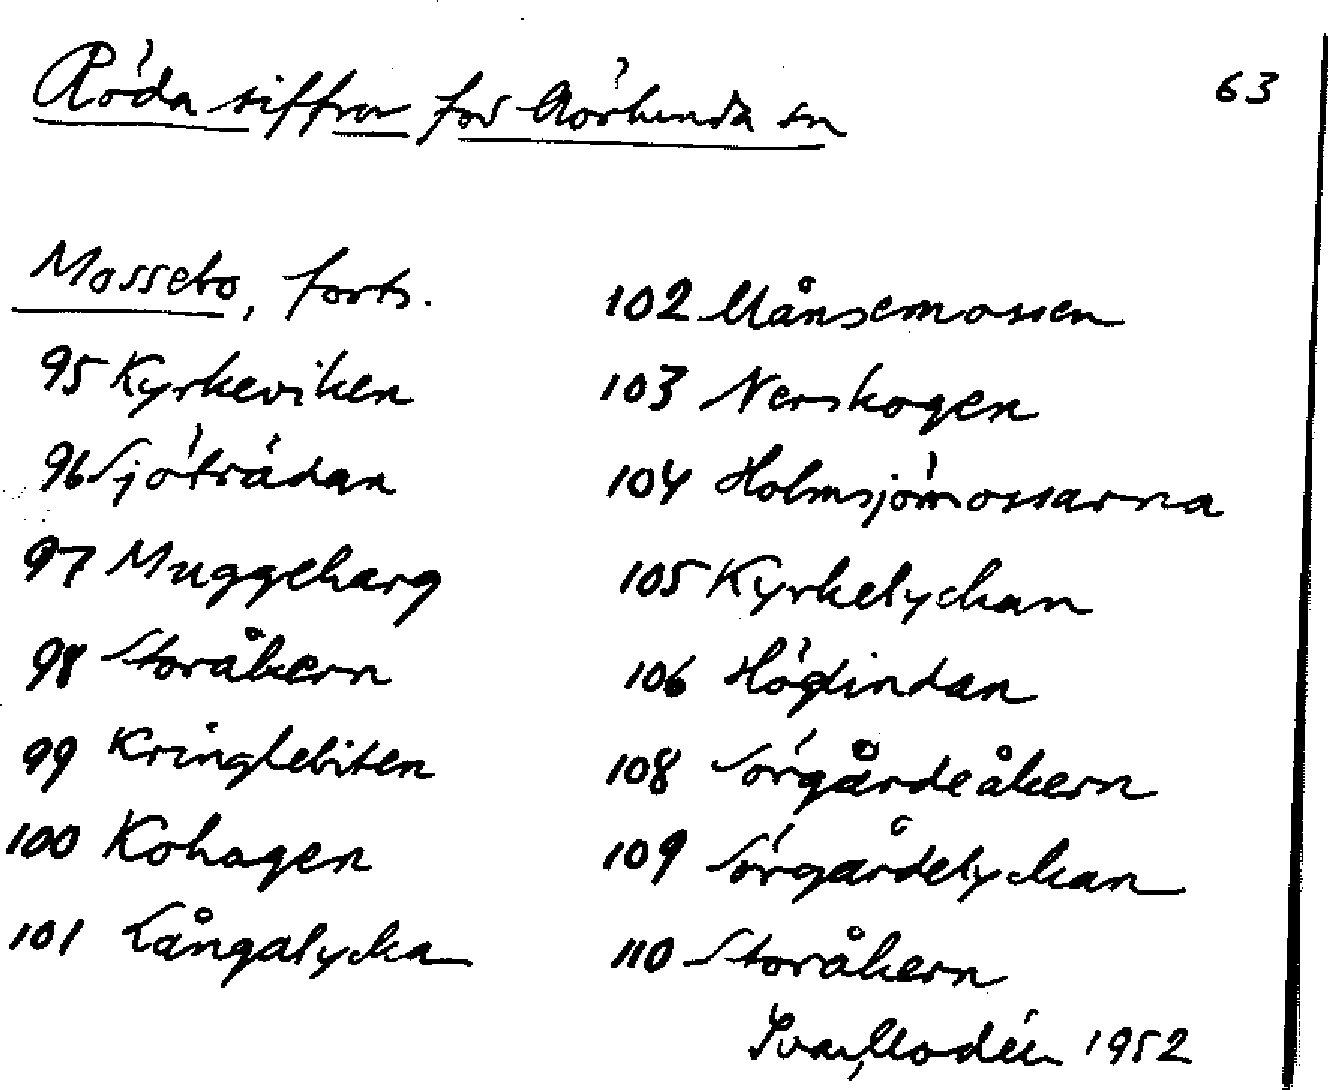 Röda siffror för Mörlunda sn
63
Mossebo, forts.
95 Kyrkeviken
96 Sjöträdan
97 Muggeharg
98 Storåkern
99 Kringlebiten
100 Kohagen
101 Långalycka
102 Månsemossen
103 Nerskogen
104 Holmsjömossarna
105 Kyrkelyckan
106 Höglindan
108 Sörgårdeåkern
109 Sörgårdelyckan
110 Storåkern
Ivar Modéer 1952